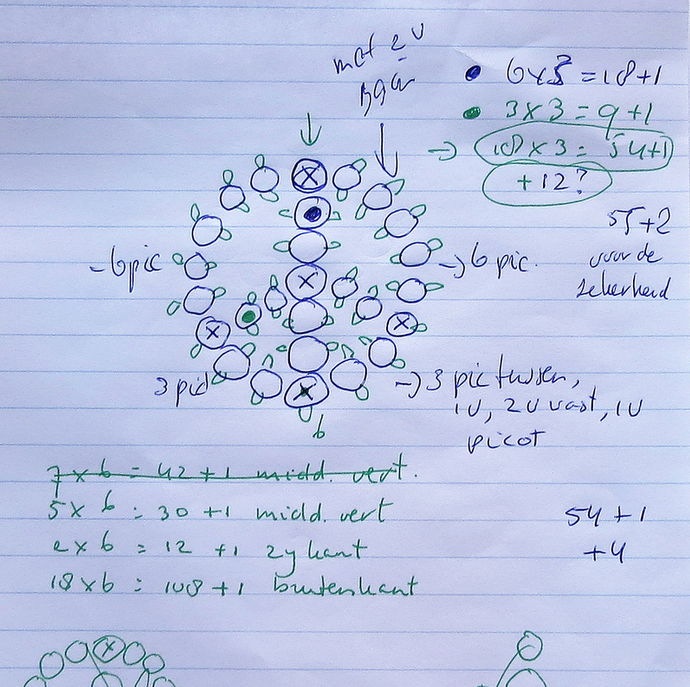 met 2 v
6 x 3 = 18 + 1
3 x 3 = 9 + 1
18 x 3 = 54 + 1
+ 12?
55 + 2
voor de
zekerheid
- 6 pic
6 pic.
3 pic
3 pic tussen,
1v, 2v vast, 1v
picot
6
7 x 6 = 42 + 1 midd. vert.
5 x 6 = 30 + 1 midd. vert
2 x 6 = 12 + 1 zykant
18 x 6 = 108 + 1 buitenkant
54 + 1
+ 4